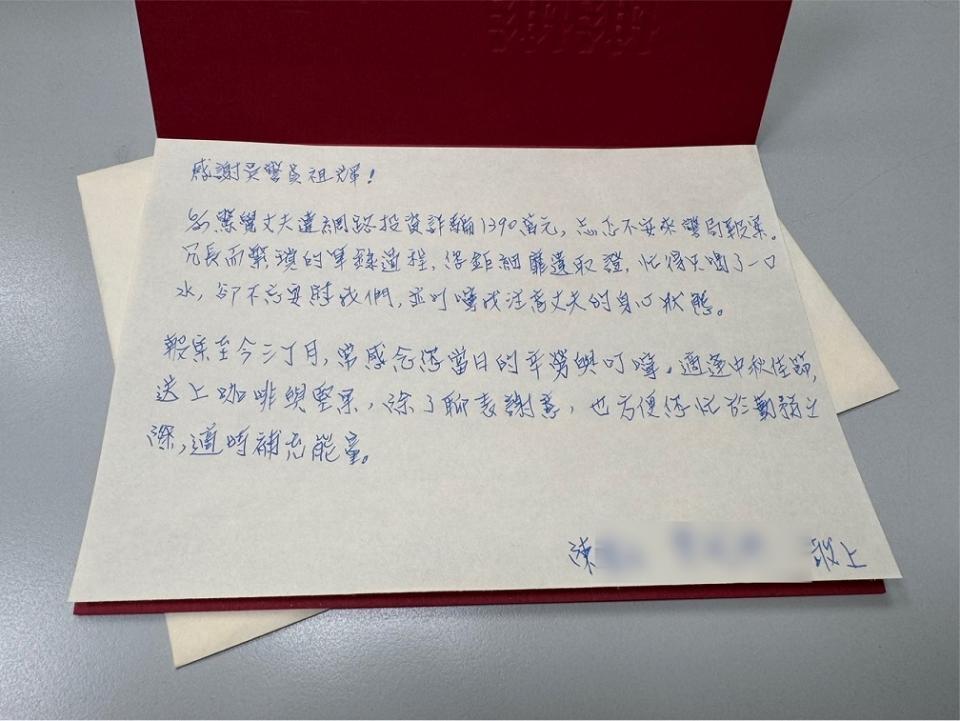 感謝吳警員祖輝！
驚覺丈夫遭網路投資詐騙1390萬元，忐忑不安來警局報案。
冗長而繁瑣的筆錄過程，您鉅細靡遺取證，忙得只喝了一口
水，卻不忘安財我們，並叮嚀我注意丈夫的身心狀態。
報案至今三個月，常感念您當日的辛勞與叮嚀。適逢中秋佳節，
送上咖啡與堅果，除了聊表謝意，也方便您忙於勤務之
際，適時補充能量。
陳 敬上